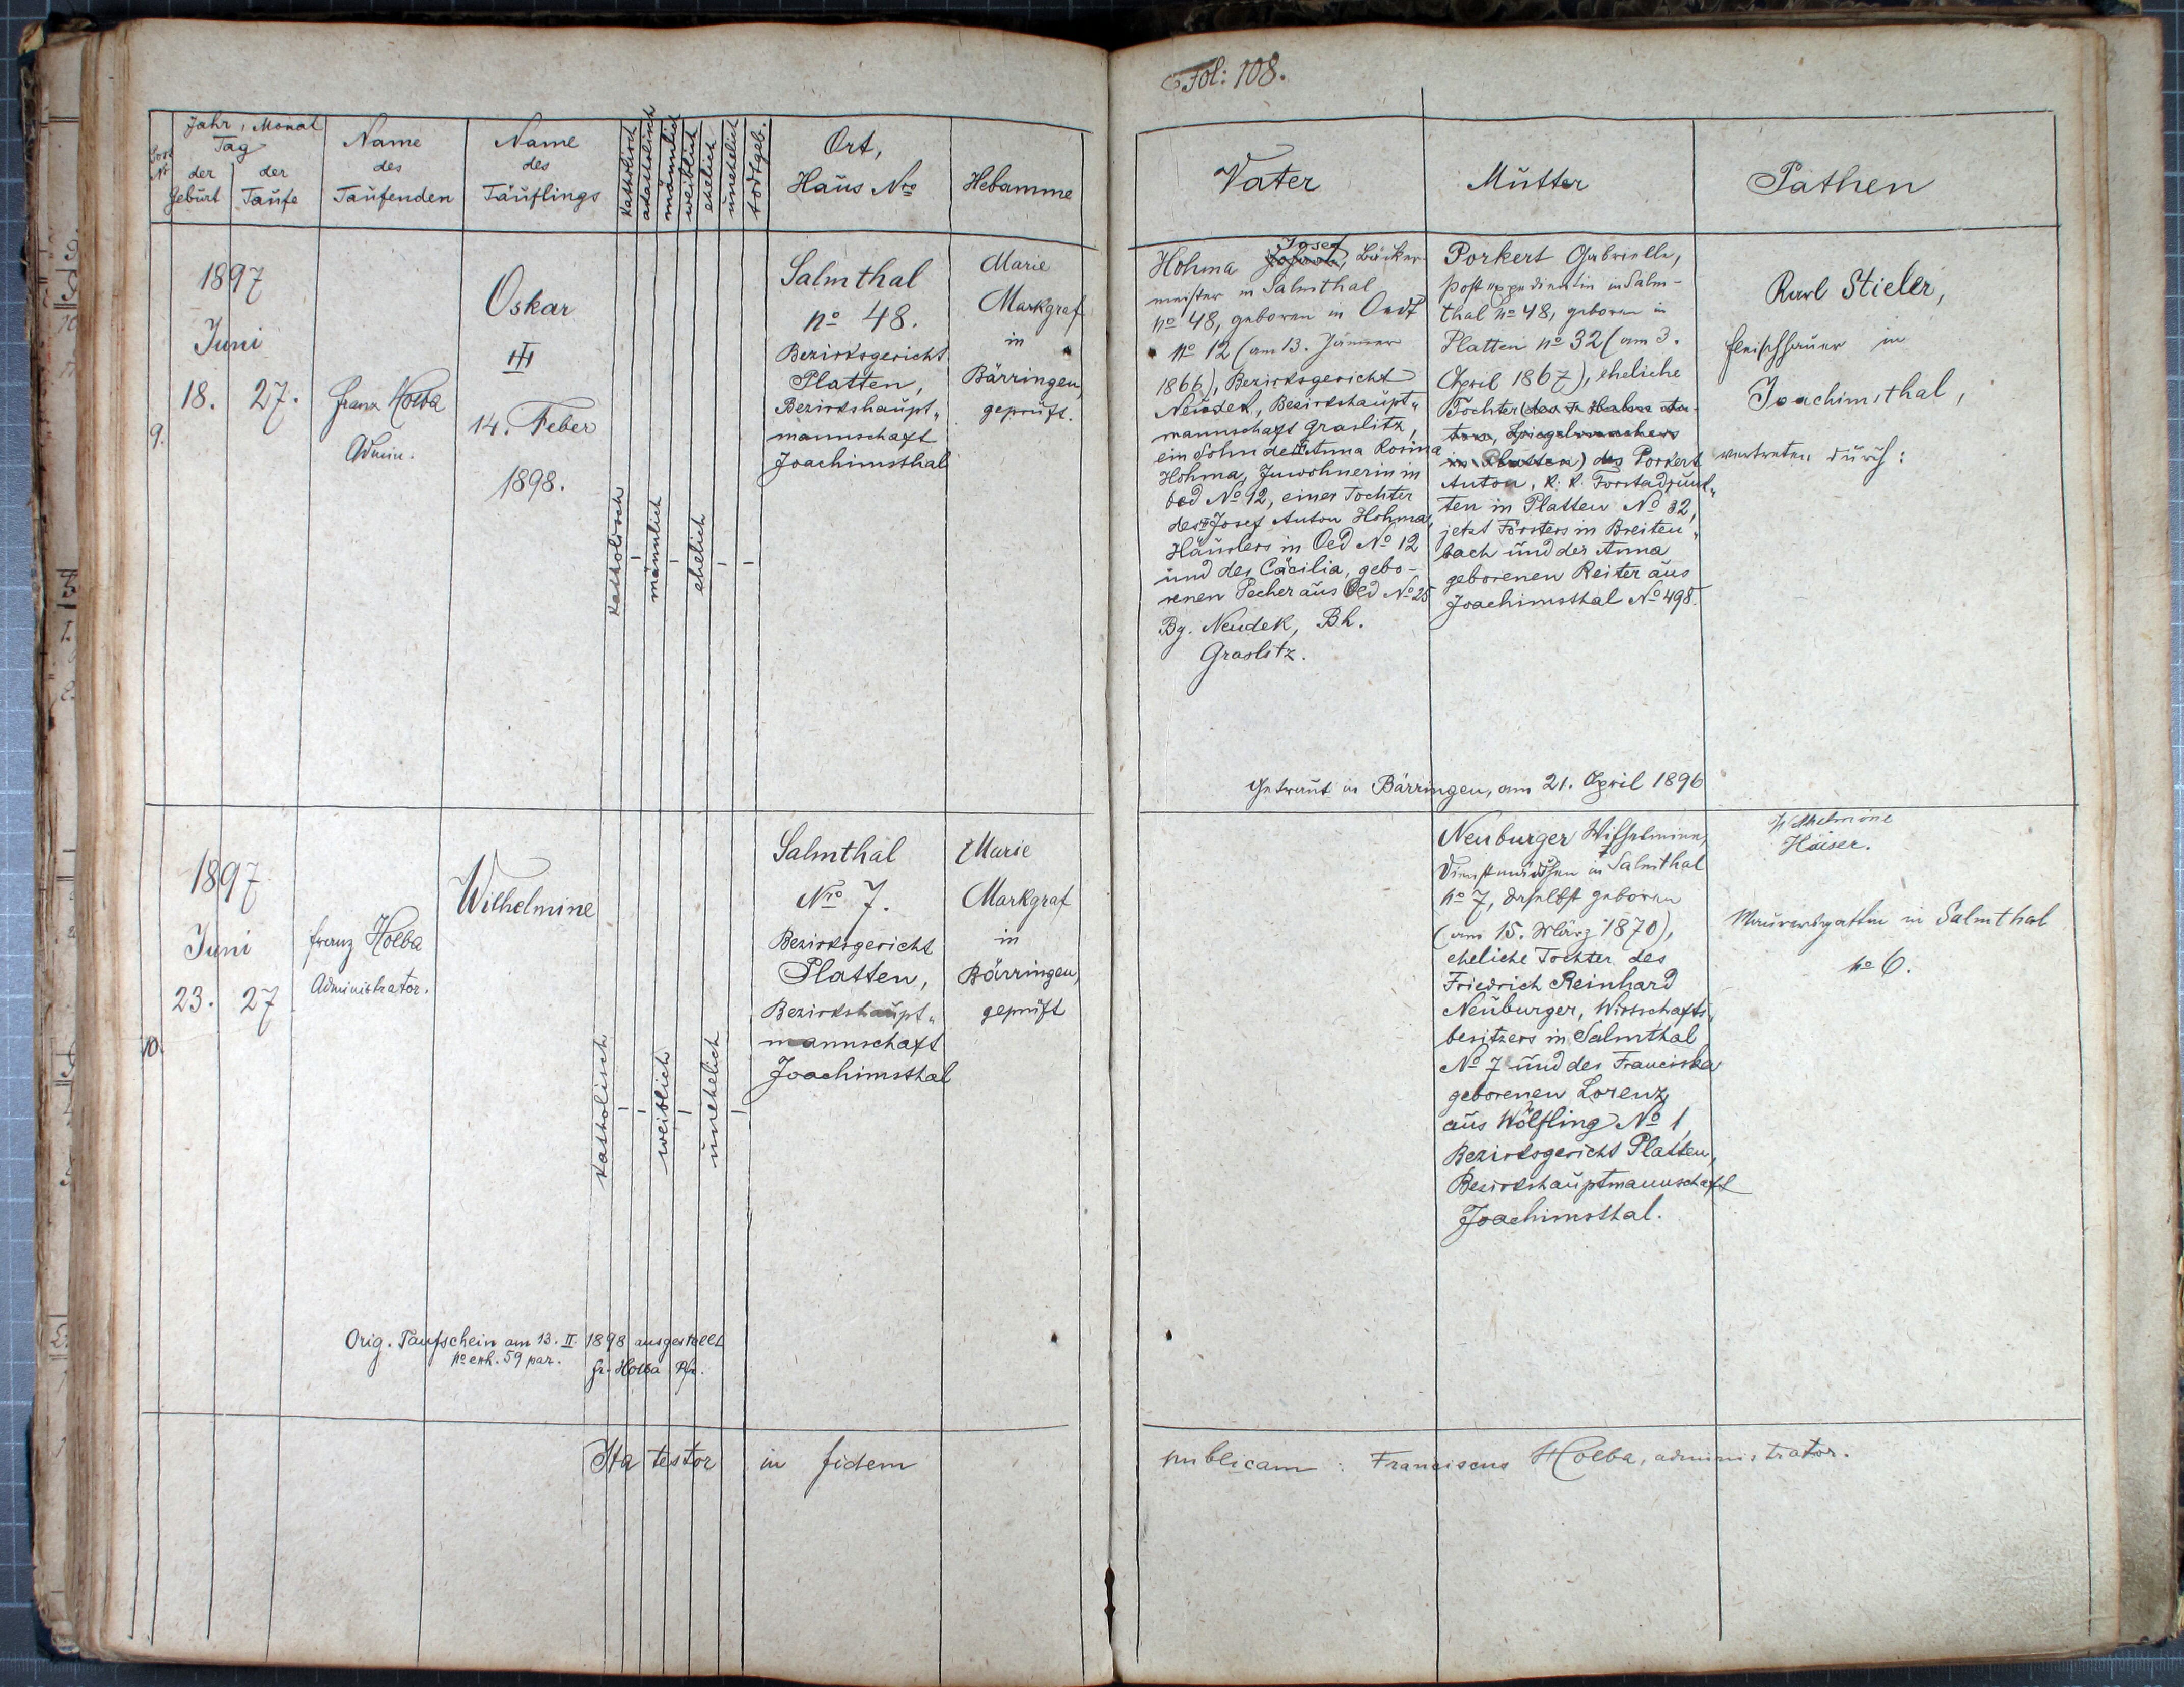 Fol: 108.
Fort Nr
Jahr, Monat
Tag
der
Geburt
der
Taufe
Name
des
Taufenden
Name
des
Täuflings
katholisch
akatholisch
männlich
weiblich
ehelich
unehelich
todtgeb.
Ort,
Haus Nro
Hebamme
Vater
Mutter
Pathen
9.
1897
Juni
18. 27.
Franz Holba
Admin.
Oskar
III
14. Feber
1898.
katholisch
–
männlich
–
ehelich
–
–
Salmthal
No 48.
Bezirksgericht
Platten,
Bezirkshaupt„
mannschaft
Joachimsthal
Marie
Markgraf
in
Bärringen,
geprüft.
Josef
Hohma Bäcker
meister in Salmthal
No 48, geboren in Oedt
No 12 (am 13. Jänner
1866), Bezirksgericht
Neudek, Bezirkshaupt„
mannschaft Graslitz,
ein Sohn der Anna Rosina
Hohma, Inwohnerin in
Oed No 12, einer Tochter
des Josef Anton Hohma,
Häuslers in Oed No 12
und der Cäcilia, gebo-
renen Pecher aus Oed No 25
Bg. Neudek, Bh.
Graslitz.
Porkert Gabrielle,
Postexpedientin in Salm-
thal No 48, geboren in
Platten No 32 (am 3.
April 1867), eheliche
Tochter
Spiegelmachers
in Platten) des Porkert
Anton, k. k. Forstadjunk„
ten in Platten No 32,
jetzt Försters in Breiten„
bach und der Anna
geborenen Reiter aus
Joachimsthal No 498.
Karl Stieler,
Fleischhauer in
Joachimsthal,
vertreten durch:
Getraut in Bärringen, am 21. April 1896
10.
1897
Juni
23. 27
Franz Holba
Administrator.
Wilhelmine
katholisch
–
–
weiblich
–
unehelich
–
Salmthal
Nro 7.
Bezirksgericht
Platten,
Bezirkshaupt„
mannschaft
Joachimsthal
Marie
Markgraf
in
Bärringen,
geprüft
Neuburger Wilhelmine,
Dienstmädchen in Salmthal
No 7, daselbst geboren
(am 15. März 1870),
eheliche Tochter des
Friedrich Reinhard
Neuburger, Wirtschafts„
besitzers in Salmthal
No 7 und der Franciska
geborenen Lorenz
aus Wölfling No 1,
Bezirksgericht Platten,
Bezirkshauptmannschaft
Joachimsthal.
Wilhelmine
Häuser.
Maurersgattin in Salmthal
No 6.
Orig. Taufschein am 13. II. 1898 ausgestellt
No exh. 59 par. Fr. Holba Pfr.
Ita testor in fidem
publicam : Franciscus Holba, administrator.